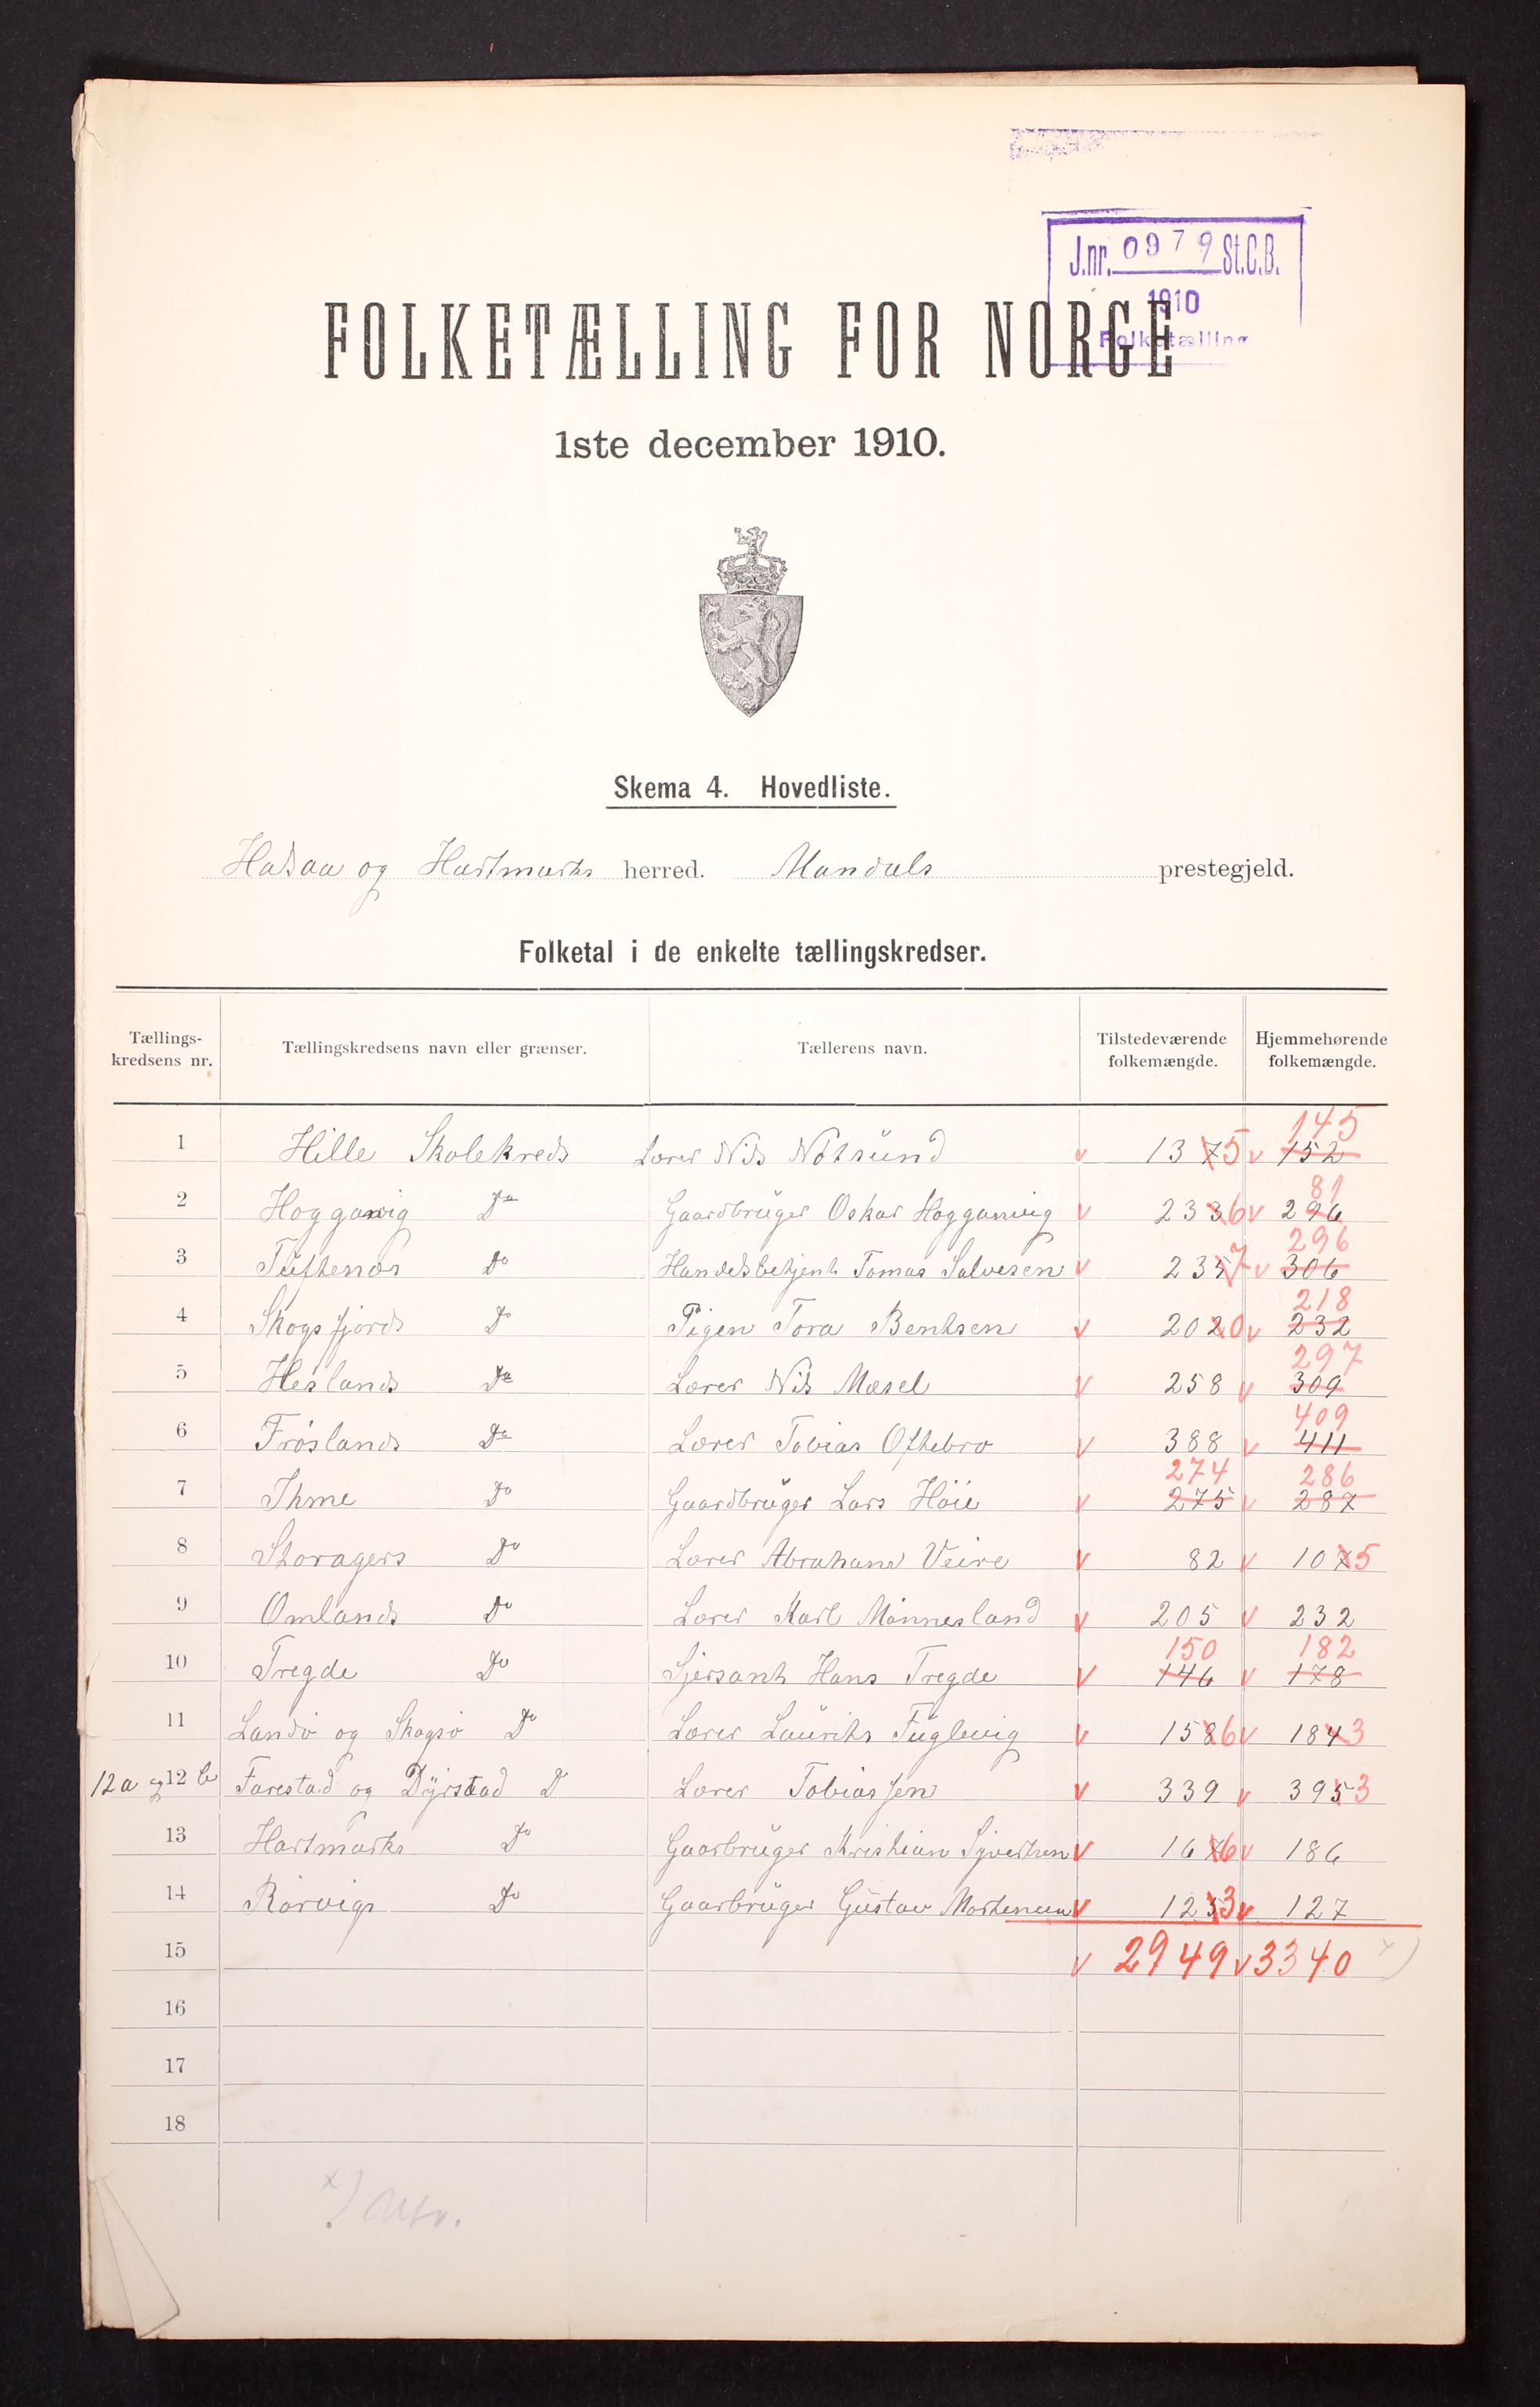 J.nr. 0979 St.C.B.
1910
Folketælling
FOLKETÆLLING FOR NORGE
1ste december 1910.
Skema 4. Hovedliste.
Halsaa og Hartmarks herred. Mandals prestegjeld.
Folketal i de enkelte tællingskredser.
Tællings-kredsens nr. Tællingskredsens navn eller grænser. Tællerens navn. Tilstedeværende folkemængde. Hjemmehørende folkemængde.
145
1 Hille Skolekreds Lærer Nils Nötsund v 1375 v 152
81
2 Hogganvig Do Gaardbruger Oskar Hogganvig v 2336 v 296
296
3 Tuftenes Do Handelsbetjent Tomas Salvesen v 2357 v 306
218
4 Skogsfjords Do Pigen Tora Bentsen v 2020 v 232
297
5 Heslands Do Lærer Nils Mæsel v 258 v 309
409
6 Fröslands Do Lærer Tobias Oftebro v 388 v 411
274 286
7 Ihme Do Gaardbruger Lars Höie v 275 v 287
8 Storagers Do Lærer Abraham Veire v 82 v 1075
9 Omlands Do Lærer Karl Mannesland v 205 v 232
150 182
10 Tregde Do Sjersant Hans Tregde v 146 v 178
11 Landö og Skogsö Do Lærer Laurits Fuglevig v 1586 v 1843
12a og 12 b Farestad og Dyrstad D Lærer Tobiassen v 339 v 3953
13 Hartmarks Do Gaarbruger Kristian Syvertsen v 1676 v 186
14 Rörvigs Do Gaarbruger Gustav Mortensen v 1253 v 127
15 v 2949 v 3340 x)
16
17
18
x)